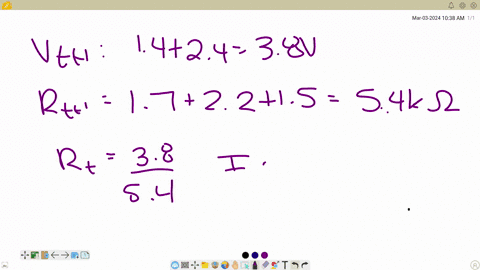 Mar-03-2024 10:38 AM 1/1
Vttl: 1.4+2.4=3.8V
Rttl = 1.7+2.2+1.5 = 5.4kΩ
Rt = 3.8/5.4 I .